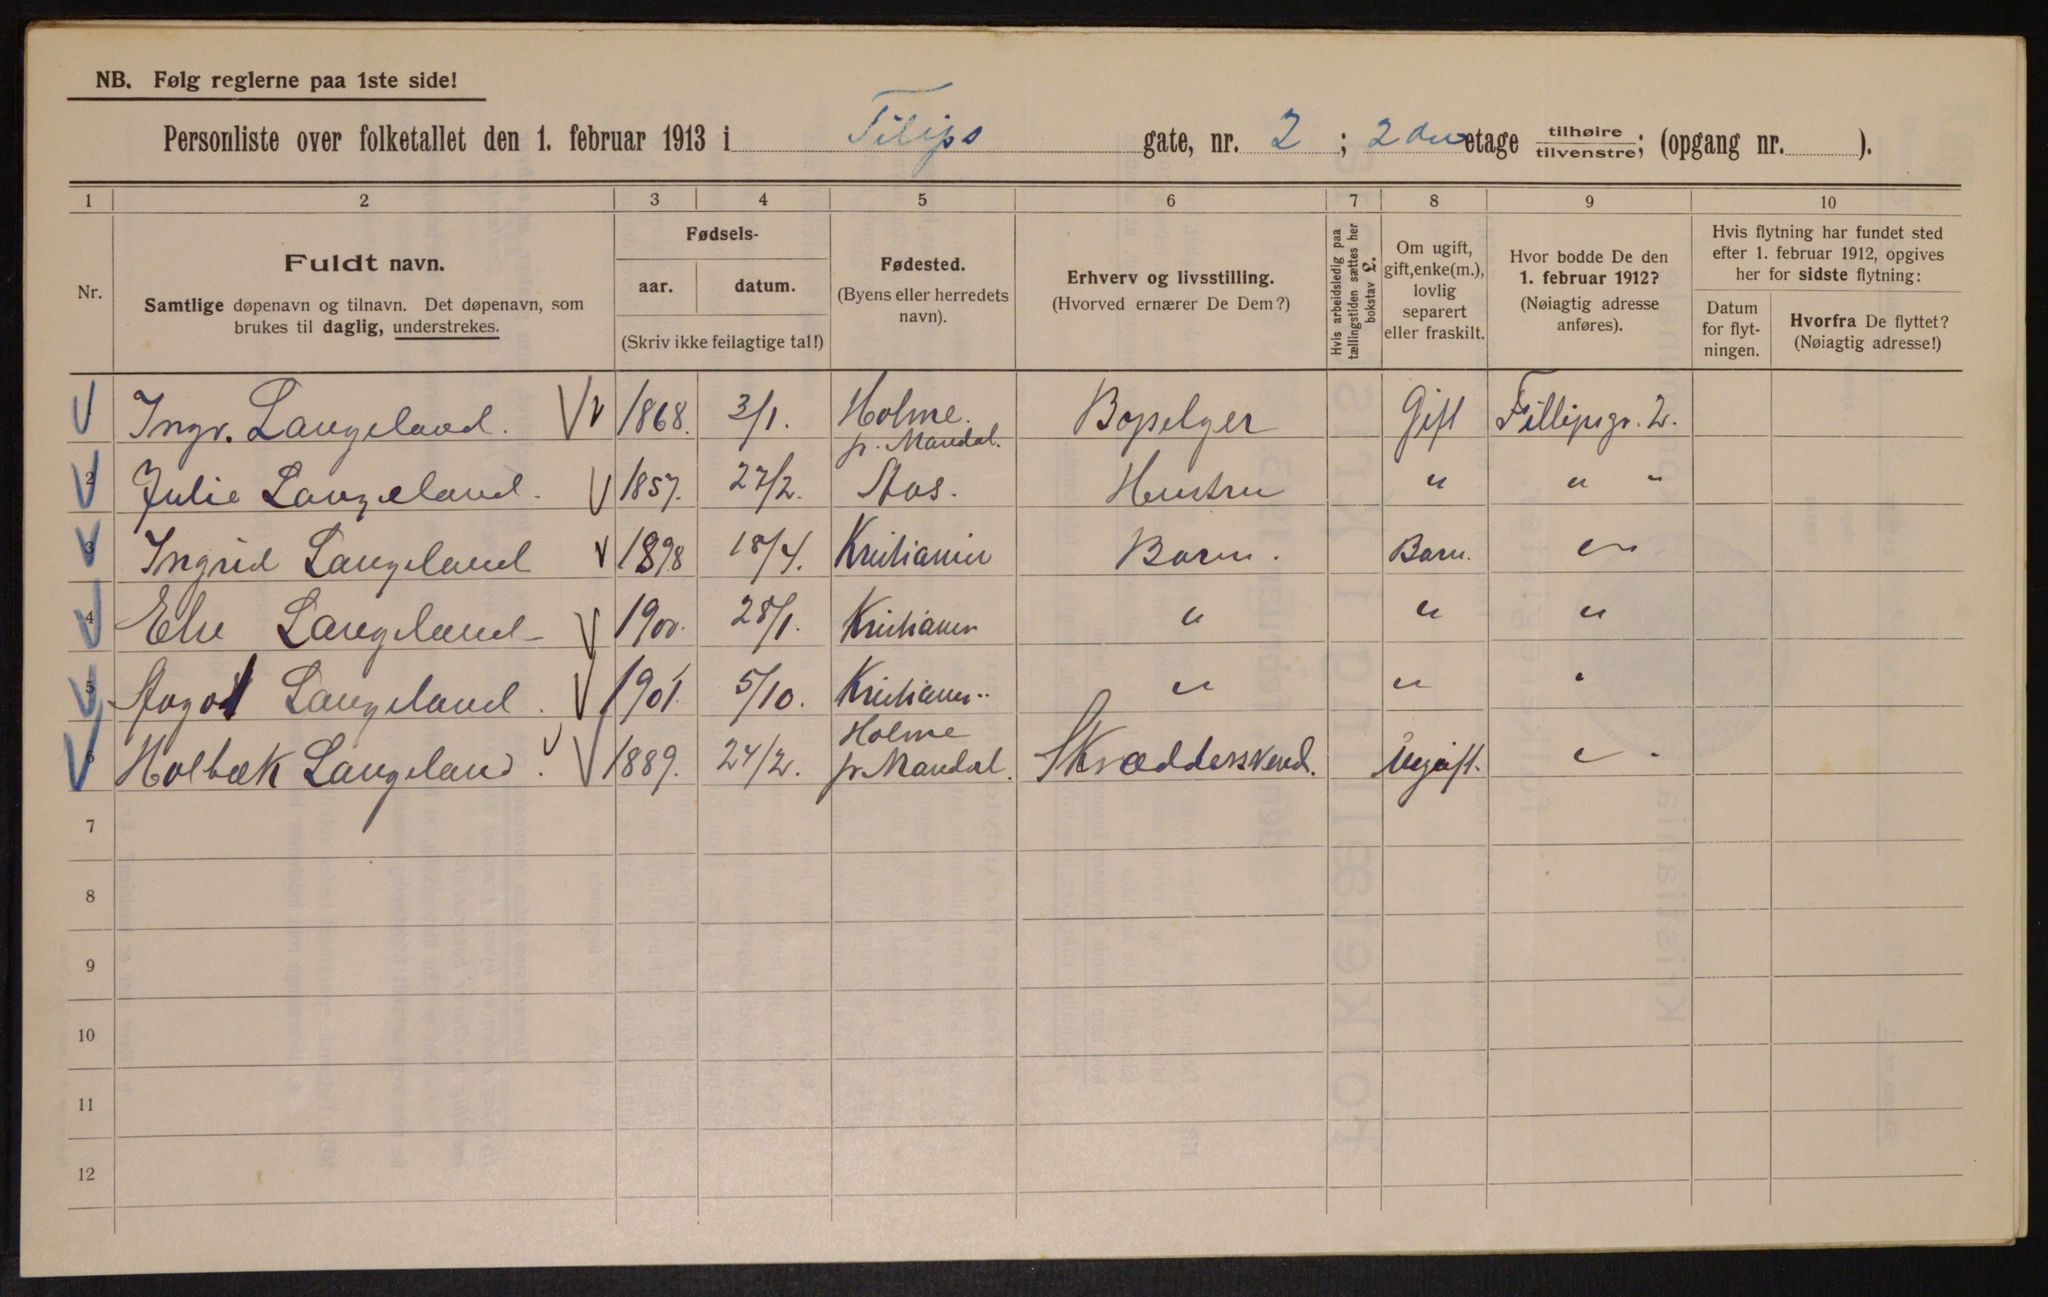 NB. Følg reglerne paa 1ste side!
Personliste over folketallet den 1. februar 1913 i Filips gate, nr. 2 ; 2den etage tilhøire/tilvenstre; (opgang nr. ).
1 2 3 4 5 6 7 8 9 10
Nr.
Fuldt navn.
Samtlige døpenavn og tilnavn. Det døpenavn, som
brukes til daglig, understrekes.
Fødsels-
aar. datum.
(Skriv ikke feilagtige tal!)
Fødested.
(Byens eller herredets
navn).
Erhverv og livsstilling.
(Hvorved ernærer De Dem?)
Hvis arbeidsledig paa
tællingstiden sættes her
bokstav £.
Om ugift,
gift, enke(m.),
lovlig
separert
eller fraskilt.
Hvor bodde De den
1. februar 1912?
(Nøiagtig adresse
anføres).
Hvis flytning har fundet sted
efter 1. februar 1912, opgives
her for sidste flytning:
Datum
for flyt-
ningen.
Hvorfra De flyttet?
(Nøiagtig adresse!)
Ingv. Langeland. 1868. 3/1. Holme. Gift Fillipsgr. 2.
pr. Mandal.
2 Julie Langeland. 1857. 27/2. Hustru " " "
3 Ingrid Langeland 1898 18/4. Kristiania Barn. Barn. "
4 Else Langeland 1900. 28/1. Kristiania " " "
5 Aagot Langeland. 1901. 5/10. Kristiania " " "
Holme
6 Holbæk Langeland. 1889. 24/2. pr Mandal. Skrædderssvend. Ugift. " "
7
8
9
10
11
12